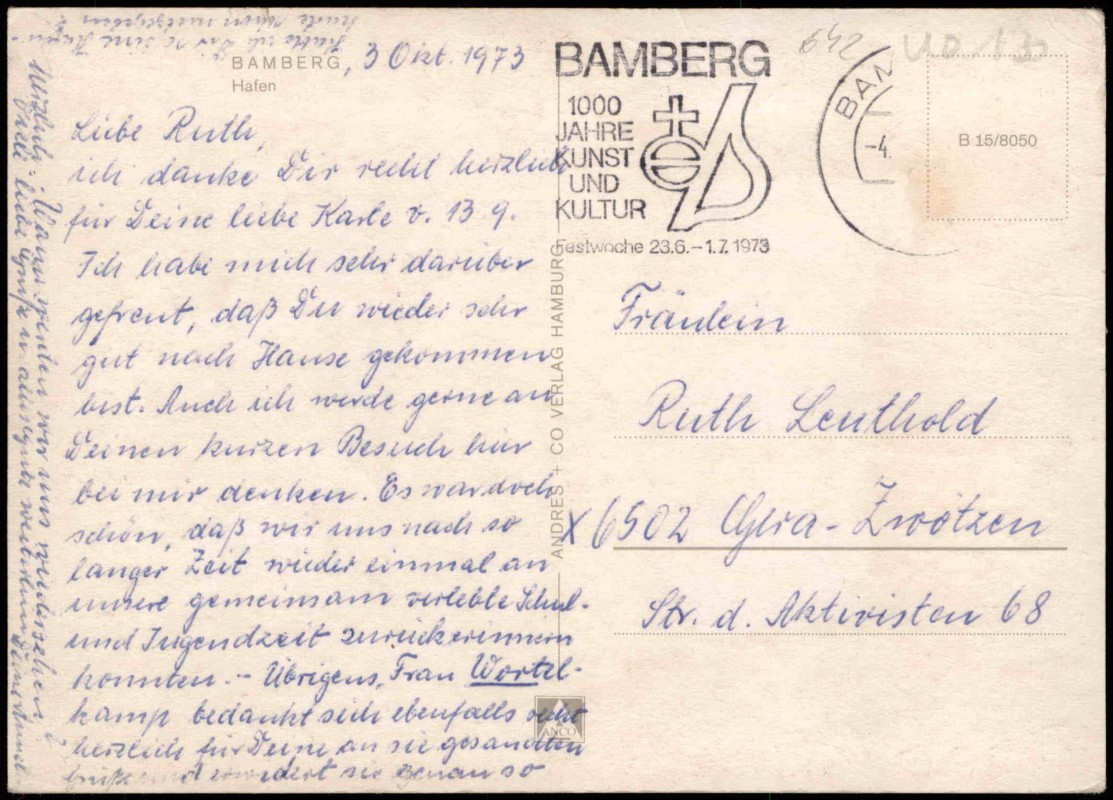 BAMBERG, 3 Okt. 1973
Hafen
Liebe Ruth,
ich danke Dir recht herzlich
für Deine liebe Karte v. 13 9.
Ich habe mich sehr darüber
gefreut, daß Du wieder sehr
gut nach Hause gekommen
bist. Auch ich werde gerne an
Deinen kurzen Besuch hier
bei mir denken. Es war doch
schön, daß wir uns nach so
langer Zeit wieder einmal an
unsere gemeinsam verlebte Schul-
und Jugendzeit zurückerinnern
konnten. - Übrigens, Frau Wortel-
kamp bedankt sich ebenfalls recht
herzlich für Deine an sie gesandten
Grüße und erwidert sie genau so
herzlich. Wann werden wir uns wiedersehen?
Viele liebe Grüße u. alles Gute
ANDRES + CO VERLAG HAMBURG
ANCO
BAMBERG
1000
JAHRE
KUNST
UND
KULTUR
Festwoche 23.6.-1.7. 1973
642
BAM
-4.
B 15/8050
Fräulein
Ruth Leuthold
X 6502 Gera-Zwötzen
Str. d. Aktivisten 68